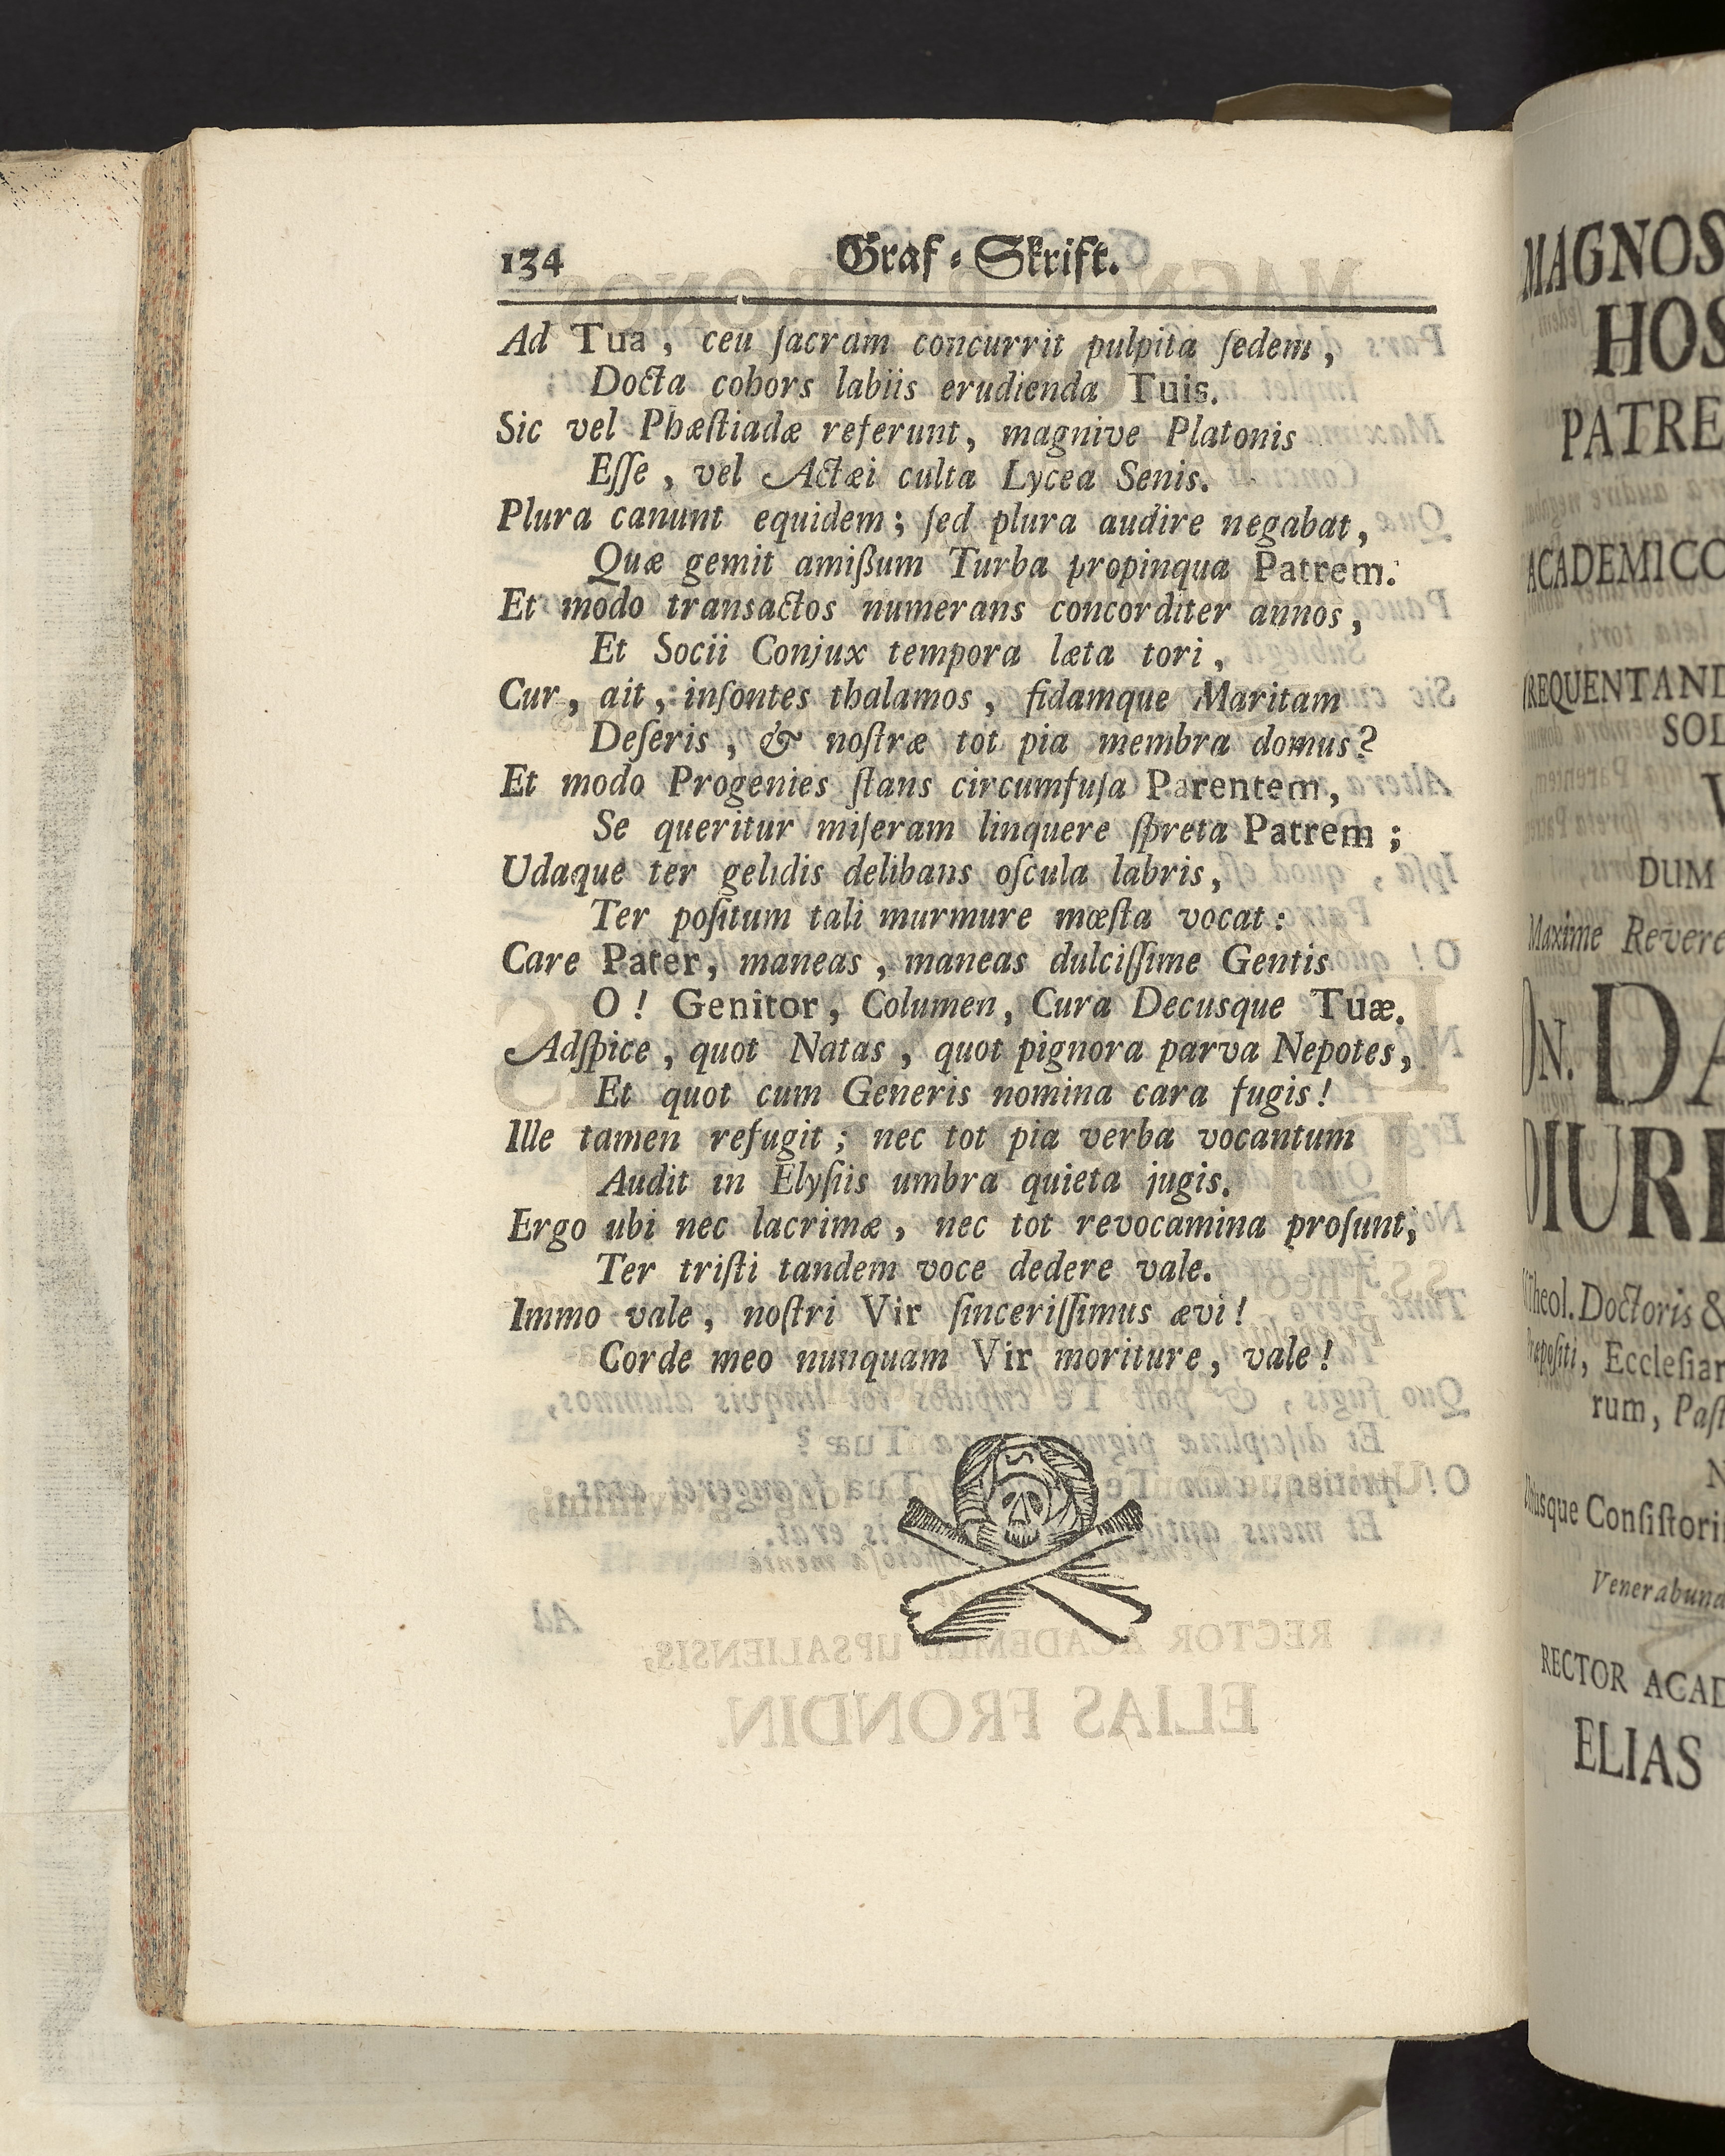 134 Graf-Skrift.
Ad Tua, ceu ſacram concurrit pulpita ſedem,
Docta cohors labiis erudienda Tuis.
Sic vel Phæſtiadæ referunt, magnive Platonis
Eſſe, vel Actæi culta Lycea Senis.
Plura canunt equidem; ſed plura audire negabat,
Quæ gemit amißum Turba propinqua Patrem.
Et modo transactos numerans concorditer annos,
Et Socii Conjux tempora læta tori,
Cur, ait, inſontes thalamos, fidamque Maritam
Deſeris, & noſtræ tot pia membra domus?
Et modo Progenies ſtans circumfuſa Parentem,
Se queritur miſeram linquere ſpreta Patrem;
Udaque ter gelidis delibans oſcula labris,
Ter poſitum tali murmure mœſta vocat:
Care Pater, maneas, maneas dulciſſime Gentis
O! Genitor, Columen, Cura Decusque Tuæ.
Adſpice, quot Natas, quot pignora parva Nepotes,
Et quot cum Generis nomina cara fugis!
Ille tamen refugit; nec tot pia verba vocantum
Audit in Elyſiis umbra quieta jugis.
Ergo ubi nec lacrimæ, nec tot revocamina proſunt,
Ter triſti tandem voce dedere vale.
Immo vale, noſtri Vir ſinceriſſimus ævi!
Corde meo nunquam Vir moriture, vale!
MAGNOS
HOS
PATRE
ACADEMICO
REQUENTAND
SOL
V
DUM
Maxime Revere
DN. DA
DIURE
Theol. Doctoris &
ræpoſiti, Eccleſiar
rum, Paſt
N
usque Conſiſtori
Venerabund
RECTOR ACAD
ELIAS